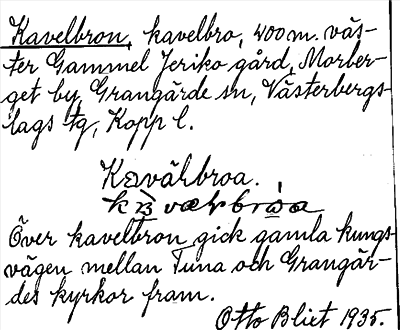 Kavelbron, kavelbro, 400 m. väs-
ter Gammel Jeriko gård, Morber-
get by, Grangärde sn, Västerbergs-
lags tg, Kopp l.
Kavälbroa.
Över kavelbron gick gamla kungs-
vägen mellan Tuna och Grangär-
des kyrkor fram.
Otto Bliet 1935.